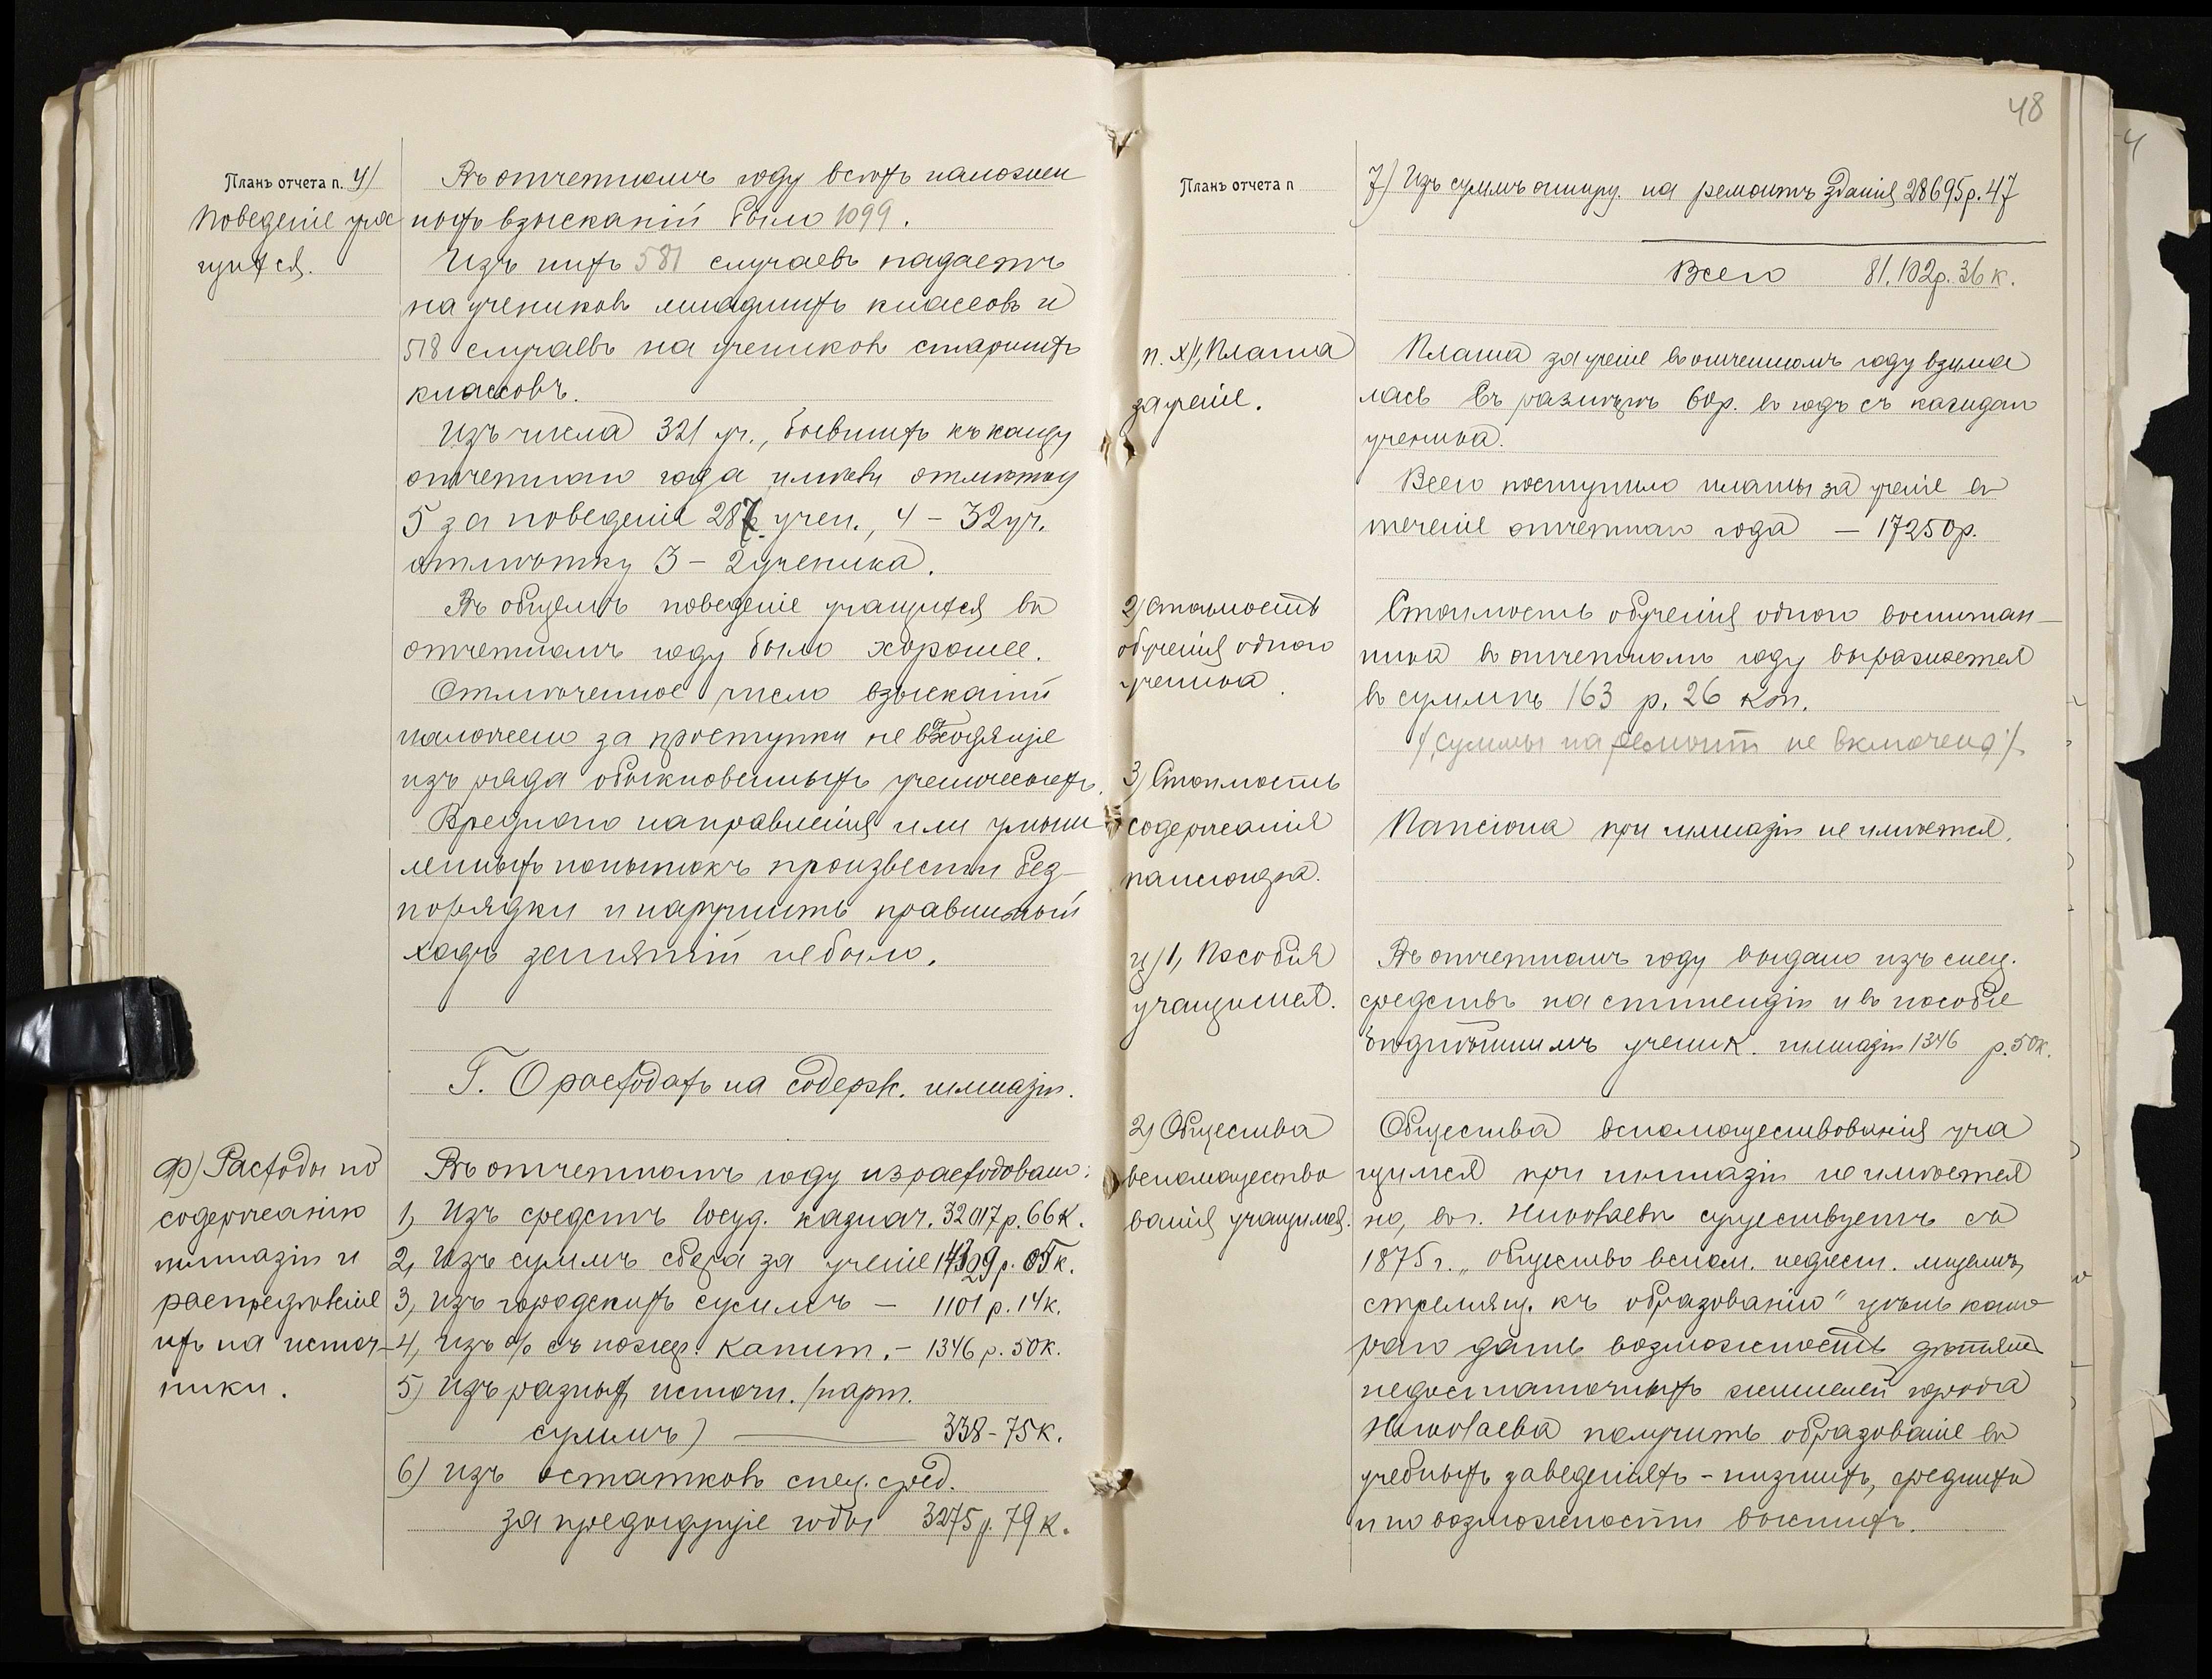 Планъ отчета п. У)
Поведеніе уча
щихся.
Въ отчетномъ году всѣхъ наложен
ныхъ взысканій было 1099.
Изъ нихъ 581 случаевъ падаетъ
на учениковъ младшихъ классовъ и
518 случаевъ на учениковъ старшихъ
классовъ.
Изъ числа 321 уч., бывшихъ къ концу
отчетнаго года имѣли отмѣтку
5 за поведеніе 287 учен., 4 – 32 уч.
отмѣтку 3 – 2 ученика.
Въ общемъ поведеніе учащихся въ
отчетномъ году было хорошее.
Отмѣченное число взысканій
наложено за проступки не выходящіе
изъ ряда обыкновенныхъ ученическихъ.
Вреднаго направленія или умыш
ленныхъ попытокъ произвести без-
порядки и нарушить правильный
ходъ занятій не было.
Г. О расходахъ на содерж. гимназіи.
Ф) Расходы по
содержанію
гимназіи и
распредѣленіе
ихъ на источ-
ники.
Въ отчетномъ году израсходовано:
1, Изъ средствъ Госуд. казнач. 32017 р. 66 к.
2, Изъ суммъ сбора за ученіе 14329 р. 05 к.
3, Изъ городскихъ суммъ – 1101 р. 14 к.
4, Изъ % съ пожер. капит. – 1346 р. 50 к.
5) Изъ разныхъ источн. /парт.
суммъ) — 338 – 75 к.
6) Изъ остатковъ спец. сред.
за предыдущіе годы 3275 р. 79 к.
48
Планъ отчета п
7) Изъ суммъ ассигн. на ремонтъ зданія 28695 р. 47
Всего 81.102 р. 36 к.
п. Х), Плата
за ученіе.
Плата за ученіе въ отчетномъ году взима
лась въ размѣрѣ 60 р. въ годъ съ каждаго
ученика.
Всего поступило платы за ученіе въ
теченіе отчетнаго года – 17250 р.
2) Стоимость
обученія одного
ученика.
Стоимость обученія одного воспитан–
ника въ отчетномъ году выражается
въ суммѣ 163 р. 26 коп.
/суммы на ремонтъ не включены/.
3) Стоимость
содержанія
пансіонера.
Пансіона при гимназіи не имѣется.
ц) 1, Пособія
учащимся.
Въ отчетномъ году выдано изъ спец.
средствъ на стипендіи и въ пособіе
бѣднѣйшимъ ученик. гимназіи 1346 р. 50 к.
2) Общества
вспомощество
ванія учащимся.
Общества вспомоществованія уча
щимся при гимназіи не имѣется
но, въ г. Николаевѣ существуетъ съ
1875 г. „Общество вспом. недост. лицамъ,
стремящ. къ образованію" цѣль кото
раго дать возможность дѣтямъ
недостаточныхъ жителей города
Николаева получить образованіе въ
учебныхъ заведеніяхъ – низшихъ, среднихъ
и по возможности высшихъ.